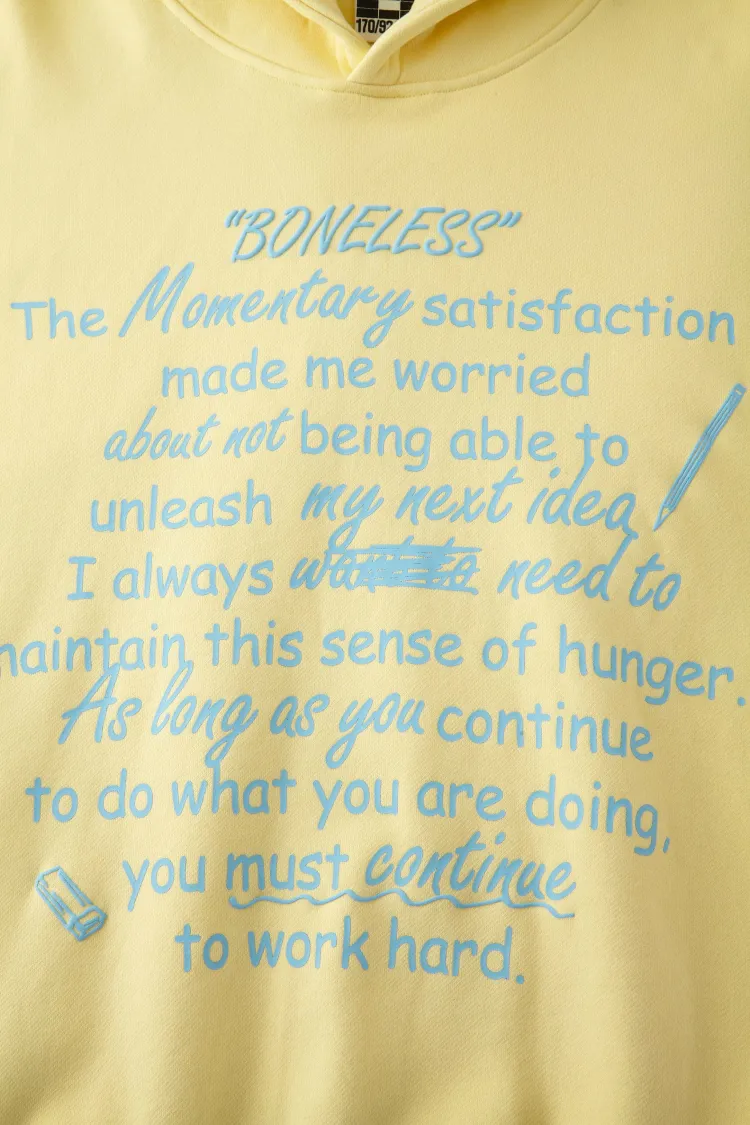 170/92
"BONELESS"
The Momentary satisfaction
made me worried
about not being able to
unleash my next idea
I always want to need to
maintain this sense of hunger.
As long as you continue
to do what you are doing,
you must continue
to work hard.